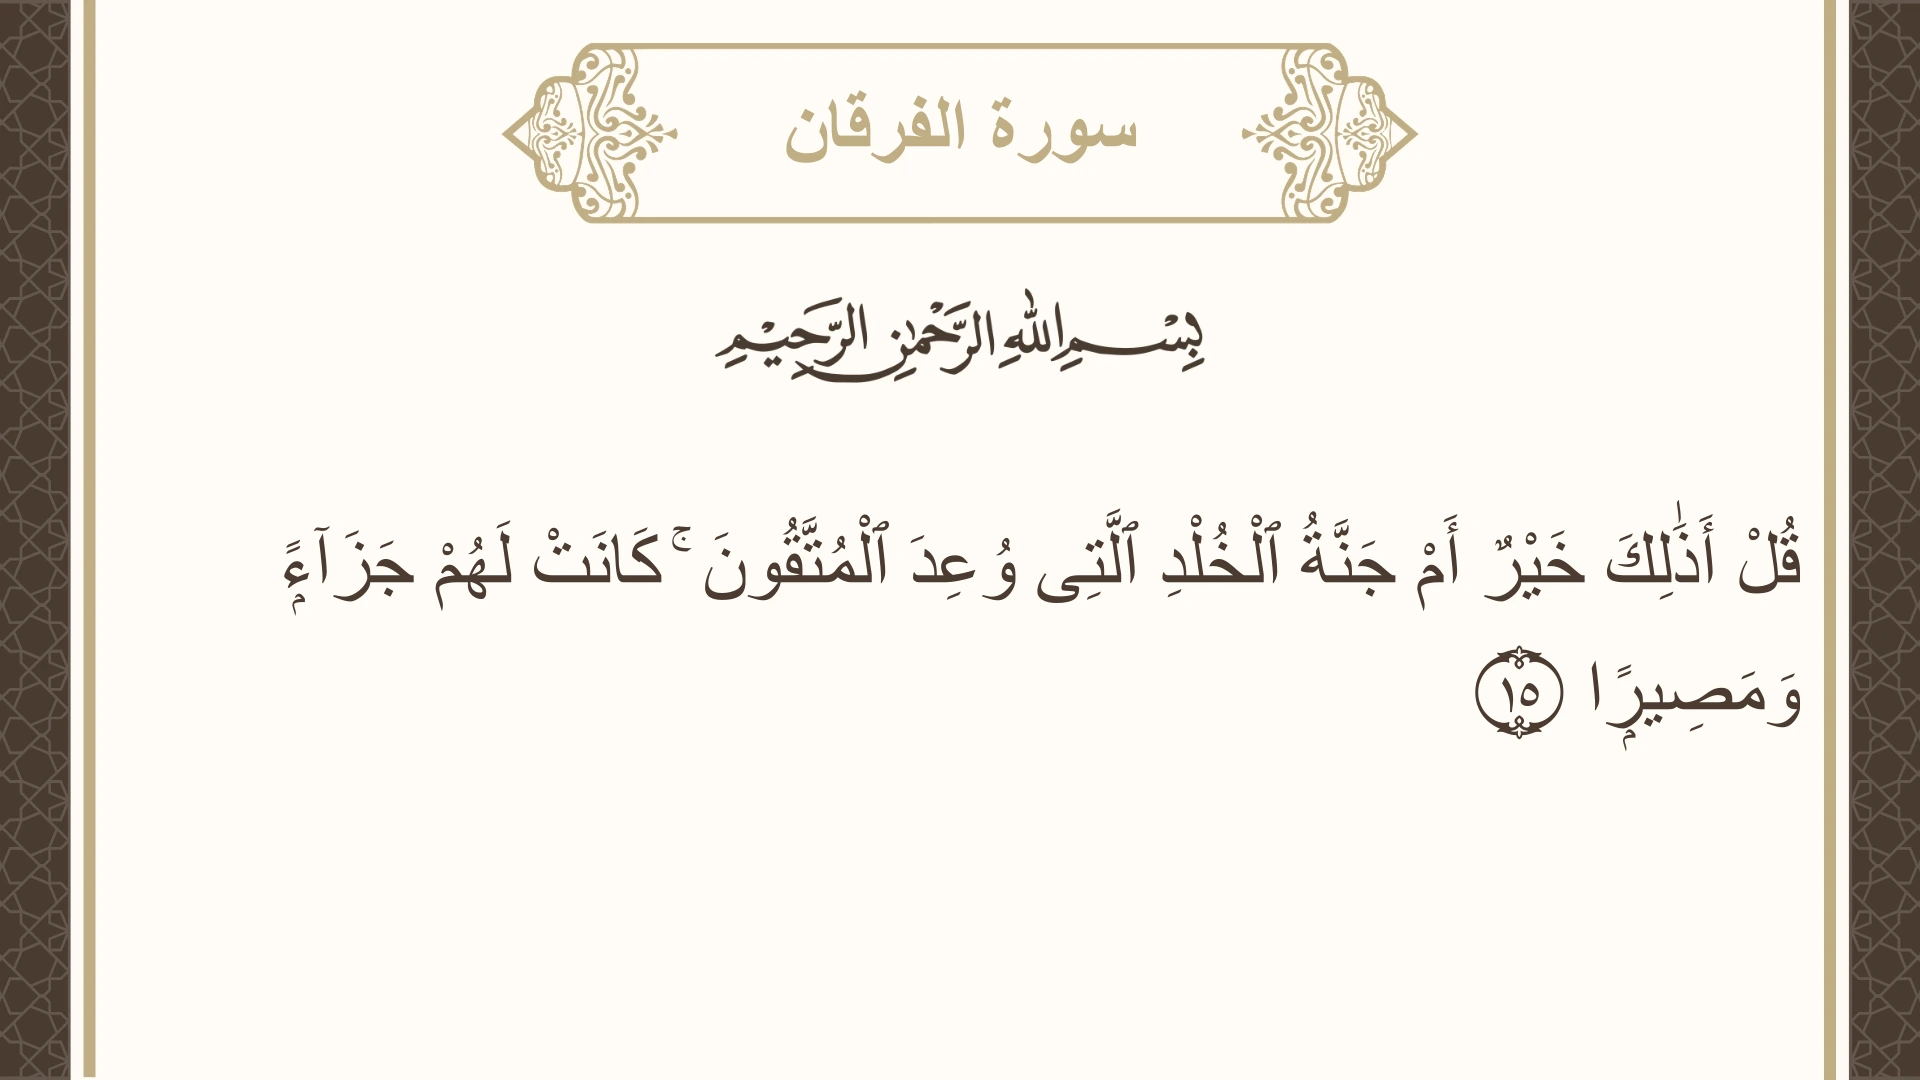 سورة الفرقان
بِسْمِ اللهِ الرَّحْمٰنِ الرَّحِيْمِ
قُلْ أَذَٰلِكَ خَيْرٌ أَمْ جَنَّةُ ٱلْخُلْدِ ٱلَّتِى وُعِدَ ٱلْمُتَّقُونَ ۚ كَانَتْ لَهُمْ جَزَآءًۭ
وَمَصِيرًۭا ١٥